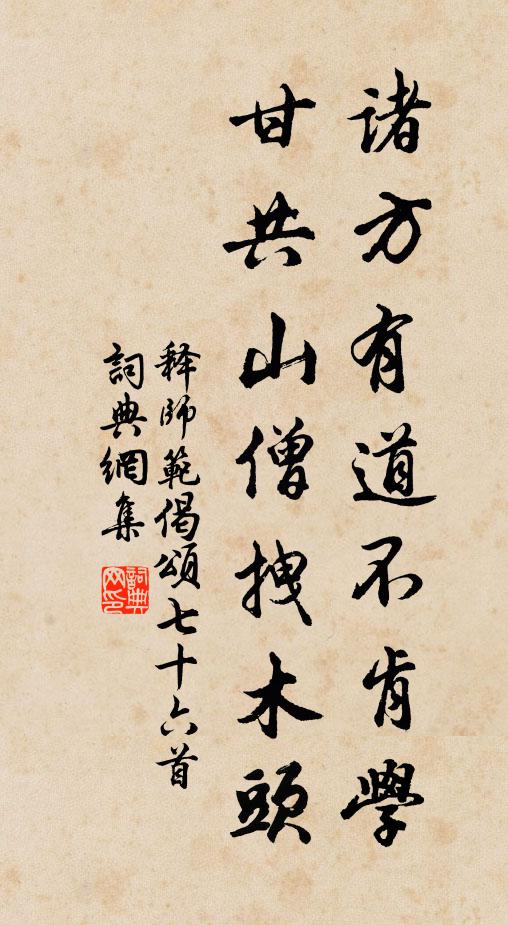 諸方有道不肯學
甘共山僧拽木頭
釋師範偈頌七十六首
詞典網集
詞典网印